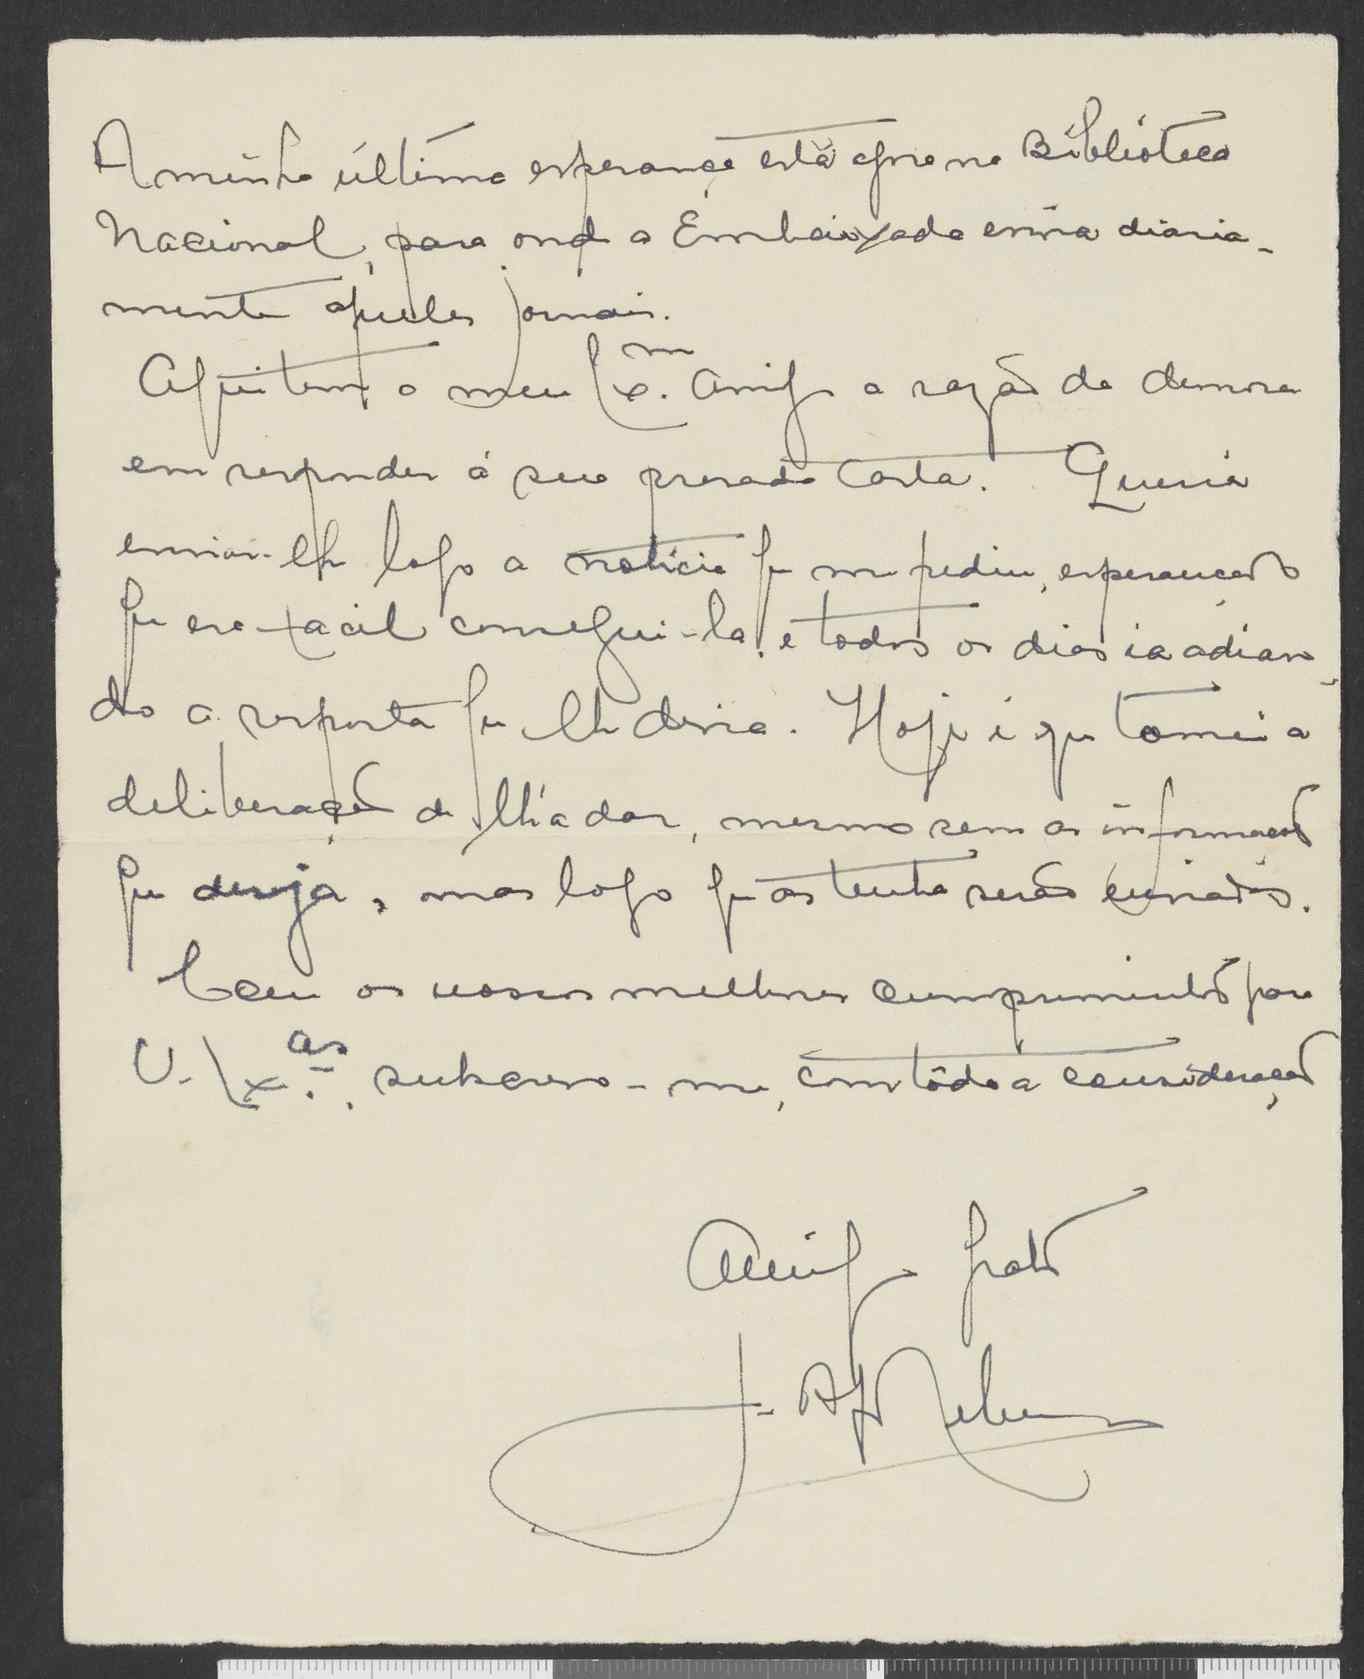 A minha última esperança está agora na Biblióteca
Nacional, para onde a Embaixada envia diaria-
mente aqueles jornais.
Aqui tem o meu Ex.mo Amigo a razão da demora
em responder á sua prezada carta. Queria
enviar-lhe logo a notícia que me pediu, esperançado
que era facil consegui-la, e todos os dias ia adian-
do a resposta que lhe devia. Hoje é que tomei a
deliberação de lh'a dar, mesmo sem as informações
que deseja, mas logo que as tenha serão enviadas.
Com os nossos melhores cumprimentos para
V. Ex.as, subscrevo-me, com tôda a consideração
Amigo grato
J.